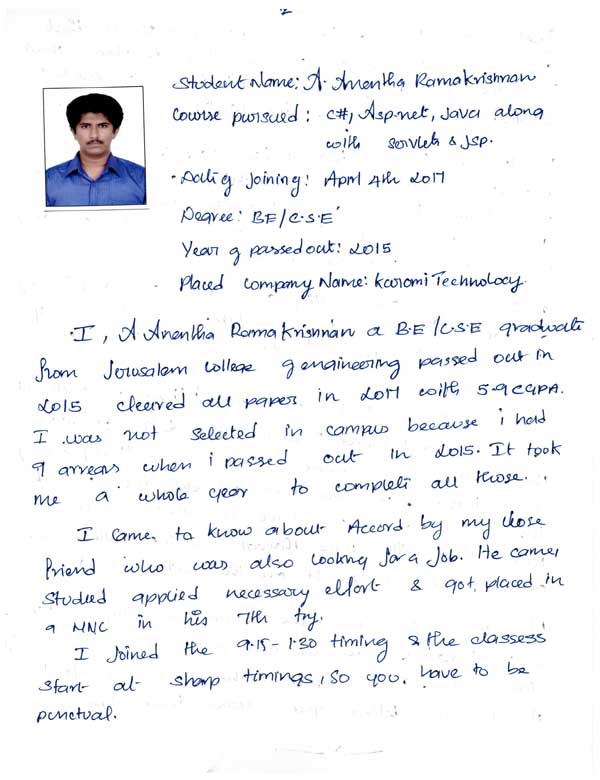 Student Name: A. Anantha Ramakrishnan
Course pursued: C#, Asp.net, Java along
with servlets & JSP.
Date of Joining: April 4th 2017
Degree: BE/C.S.E
Year of passed out: 2015
Placed Company Name: Kaaromi Technology.
I, A Anantha Ramakrishnan a B.E/CSE graduate
from Jerusalem College of engineering passed out in
2015 cleared all paper in 2017 with 5.9 CGPA.
I was not selected in campus because i had
9 arrears when i passed out in 2015. It took
me a whole year to complete all those.
I came to know about Accord by my close
friend who was also looking for a Job. He came,
studied applied necessary effort & got placed in
a MNC in his 7th try.
I Joined the 9.15-1.30 timing & the classess
start at sharp timings, so you have to be
punctual.